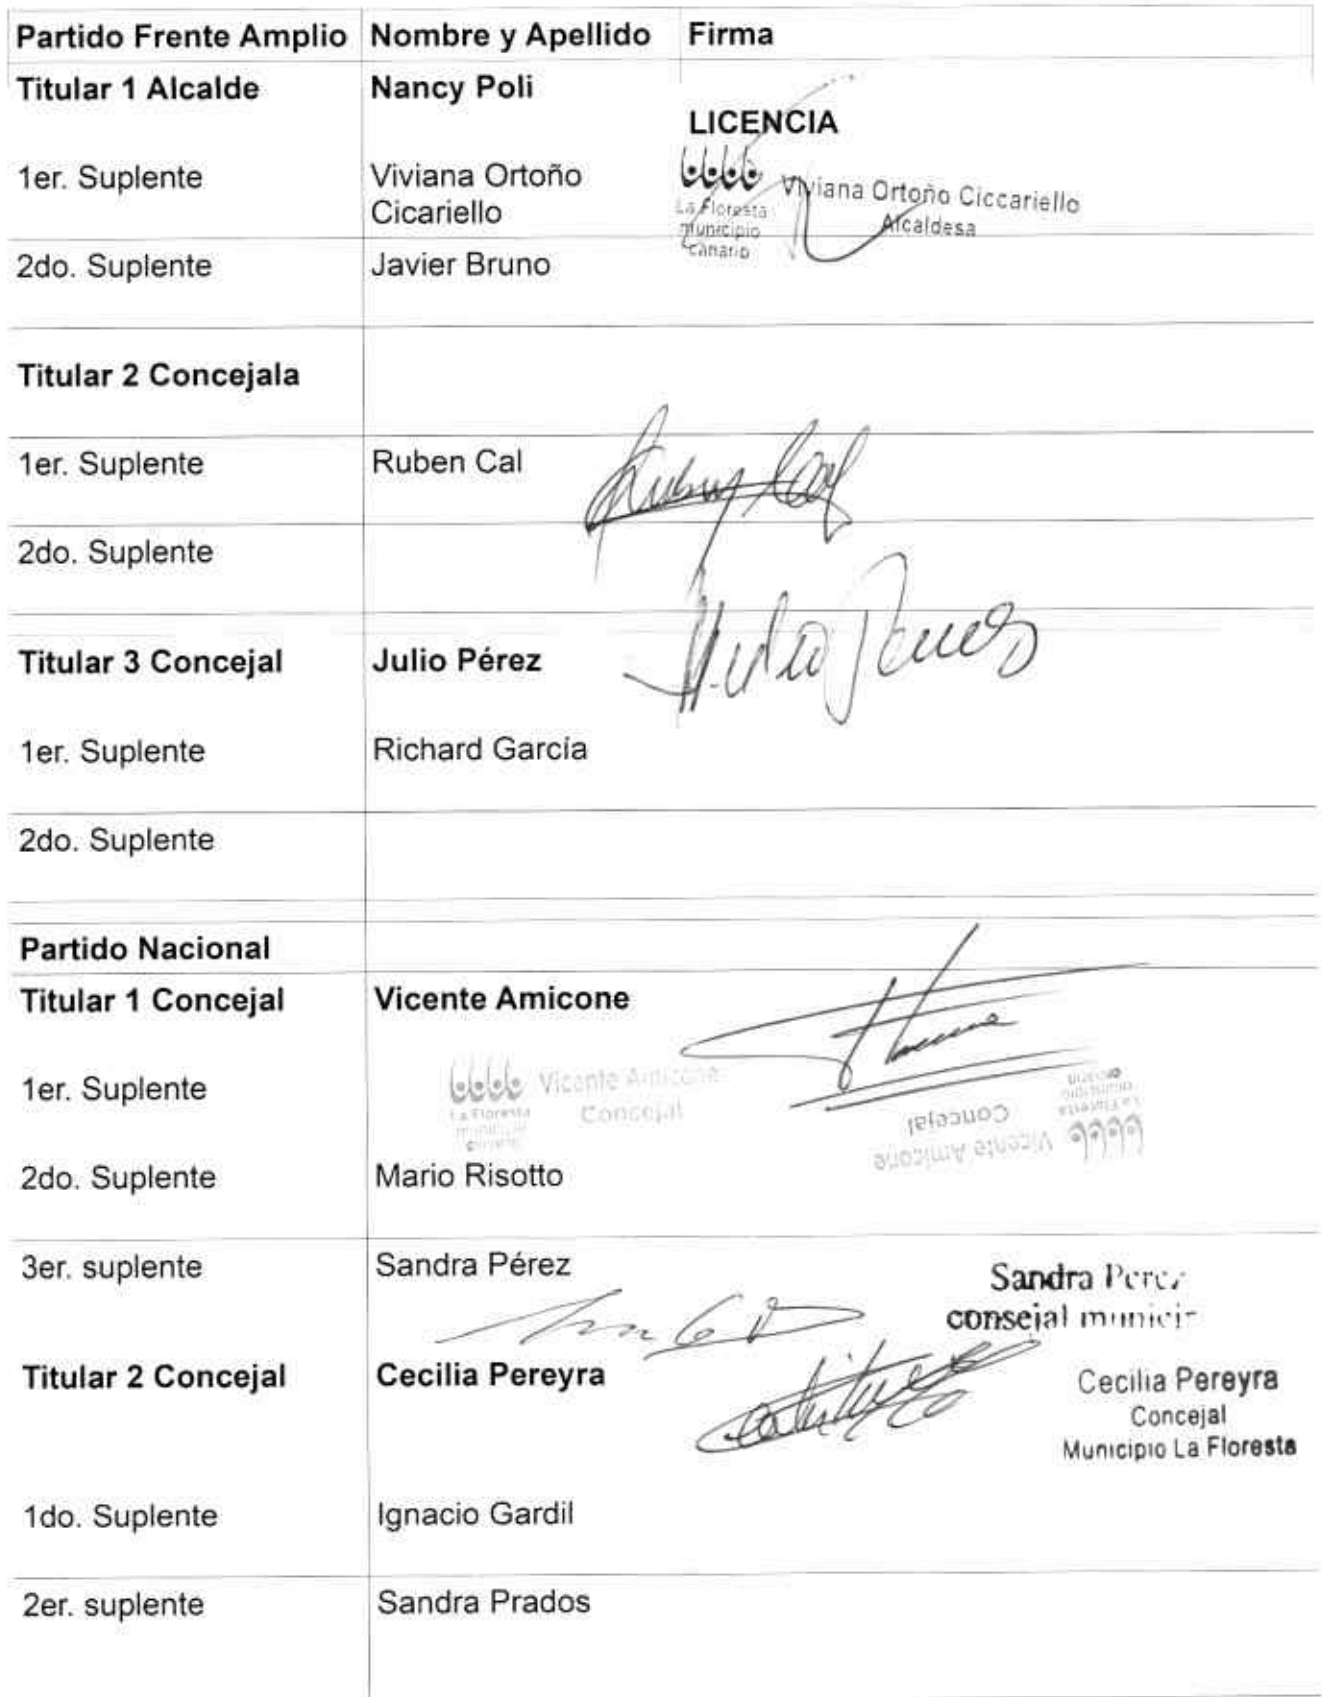 Partido Frente Amplio Nombre y Apellido Firma
Titular 1 Alcalde Nancy Poli
LICENCIA
1er. Suplente Viviana Ortoño
Cicariello
Viviana Ortoño Ciccariello
Alcaldesa
La Floresta
municipio
canario
2do. Suplente Javier Bruno
Titular 2 Concejala
1er. Suplente Ruben Cal
2do. Suplente
Titular 3 Concejal Julio Pérez
1er. Suplente Richard García
2do. Suplente
Partido Nacional
Titular 1 Concejal Vicente Amicone
1er. Suplente
Vicente Amicone
Concejal
La Floresta
Vicente Amicone
Concejal
La Floresta
municipio
2do. Suplente Mario Risotto
3er. suplente Sandra Pérez
Sandra Perez
consejal
Titular 2 Concejal Cecilia Pereyra
Cecilia Pereyra
Concejal
Municipio La Floresta
1do. Suplente Ignacio Gardil
2er. suplente Sandra Prados